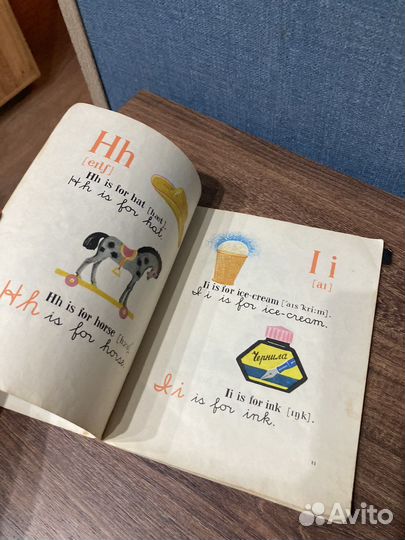 Hh
[eɪtʃ]
Hh is for hat [hæt]
Hh is for hat.
Hh is for horse
Hh is for horse.
I i
[aɪ]
Ii is for ice-cream ['aɪs'kri:m].
Ii is for ice-cream.
Чернила
Ii is for ink [ɪŋk].
Ii is for ink.
11
Avito